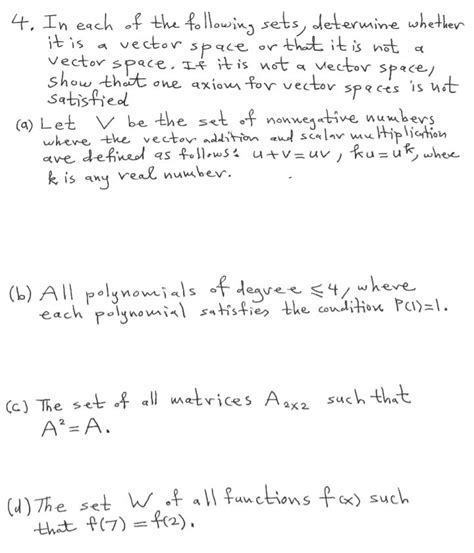 4. In each of the following sets, determine whether
it is a vector space or that it is not a
vector space. If it is not a vector space,
show that one axiom for vector spaces is not
satisfied
(a) Let V be the set of nonnegative numbers
where the vector addition and scalar multiplication
are defined as follows: u+v=uv, ku=u^k, where
k is any real number.
(b) All polynomials of degree ≤4, where
each polynomial satisfies the condition P(1)=1.
(c) The set of all matrices A₂ₓ₂ such that
A²=A.
(d) The set W of all functions f(x) such
that f(7)=f(2).